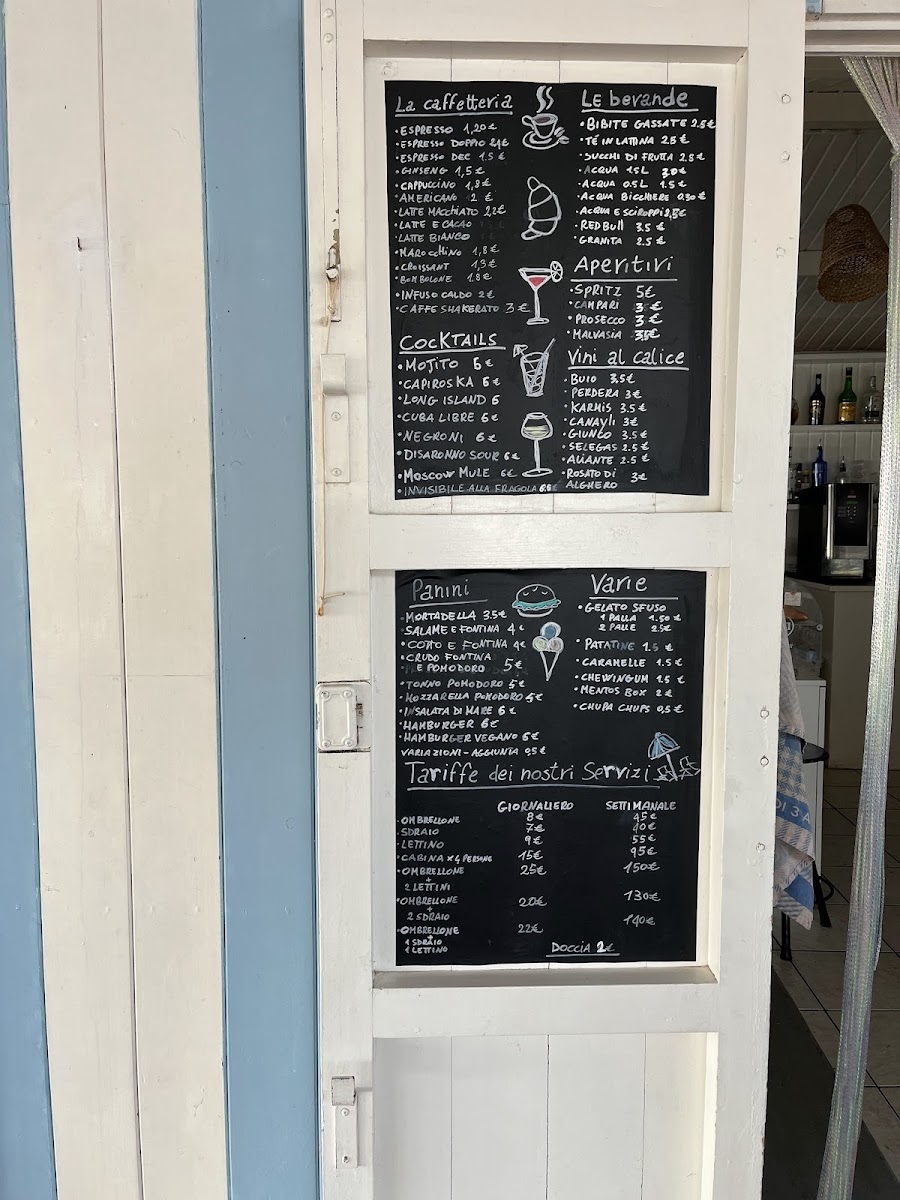 La caffetteria
• ESPRESSO 1,20 €
• ESPRESSO DOPPIO 2,4€
• ESPRESSO DEC 1.5 €
• GINSENG 1,5 €
• CAPPUCCINO 1,8 €
• AMERICANO 2 €
• LATTE MACCHIATO 2,2€
• LATTE E CACAO
• LATTE BIANCO
• MAROCCHINO 1,8 €
• CROISSANT 1,3 €
• BOMBOLONE 1.8 €
• INFUSO CALDO 2 €
• CAFFE SHAKERATO 3 €
COCKTAILS
• MOJITO 6 €
• CAPIROSKA 6 €
• LONG ISLAND 6
• CUBA LIBRE 6 €
• NEGRONI 6 €
• DISARONNO SOUR 6 €
• MOSCOW MULE 6 €
• INVISIBILE ALLA FRAGOLA
LE bevande
• BIBITE GASSATE 2.5 €
• TÉ IN LATTINA 2.5 €
• SUCCHI DI FRUTTA 2.8 €
• ACQUA 1.5 L 3,0 €
• ACQUA 0.5 L 1.5 €
• ACQUA BICCHIERE 0,30 €
• ACQUA E SCIROPPI 2,5€
• RED BULL 3.5 €
• GRANITA 2.5 €
Aperitivi
• SPRITZ 5€
• CAMPARI 3 €
• PROSECCO 3 €
• MALVASIA 3,5€
Vini al calice
• BUIO 3,5€
• PERDERA 3 €
• KARMIS 3.5 €
• CANAYLI 3€
• GIUNCO 3.5 €
• SELEGAS 2.5 €
• ALIANTE 2.5 €
• ROSATO DI 3€
ALGHERO
Panini
• MORTADELLA 3.5€
• SALAME E FONTINA 4 €
• COTTO E FONTINA 4€
• CRUDO FONTINA
E POMODORO 5€
• TONNO POMODORO 5 €
• MOZZARELLA POMODORO 5 €
• INSALATA DI MARE 6 €
• HAMBURGER 6€
• HAMBURGER VEGANO 6€
VARIAZIONI - AGGIUNTA 0,5 €
Varie
• GELATO SFUSO
1 PALLA 1.50 €
2 PALLE 2.5€
• PATATINE 1.5 €
• CARAMELLE 1.5 €
• CHEWINGUM 1.5 €
• MENTOS BOX 2 €
• CHUPA CHUPS 0,5 €
Tariffe dei nostri Servizi
GIORNALIERO SETTIMANALE
• OMBRELLONE 8€ 45€
• SDRAIO 7€ 40€
• LETTINO 9€ 55€
• CABINA x 4 PERSONE 15€ 95€
• OMBRELLONE 25€ 150€
+
2 LETTINI
• OMBRELLONE 20€ 130€
+
2 SDRAIO
• OMBRELLONE 22€ 140€
+
1 SDRAIO
1 LETTINO
DOCCIA 2€